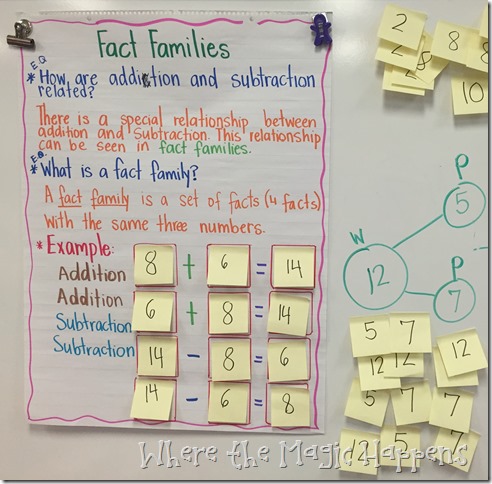 Fact Families
EQ
*How are addition and subtraction
related?
There is a special relationship between
addition and subtraction. This relationship
can be seen in fact families.
EQ
*What is a fact family?
A fact family is a set of facts (4 facts)
with the same three numbers.
*Example:
Addition 8 + 6 = 14
Addition 6 + 8 = 14
Subtraction 14 - 8 = 6
Subtraction 14 - 6 = 8
2
8
8
10
P
5
W
12
P
7
5 7
12 12 12
5 7 7
12 5 7
Where the Magic Happens